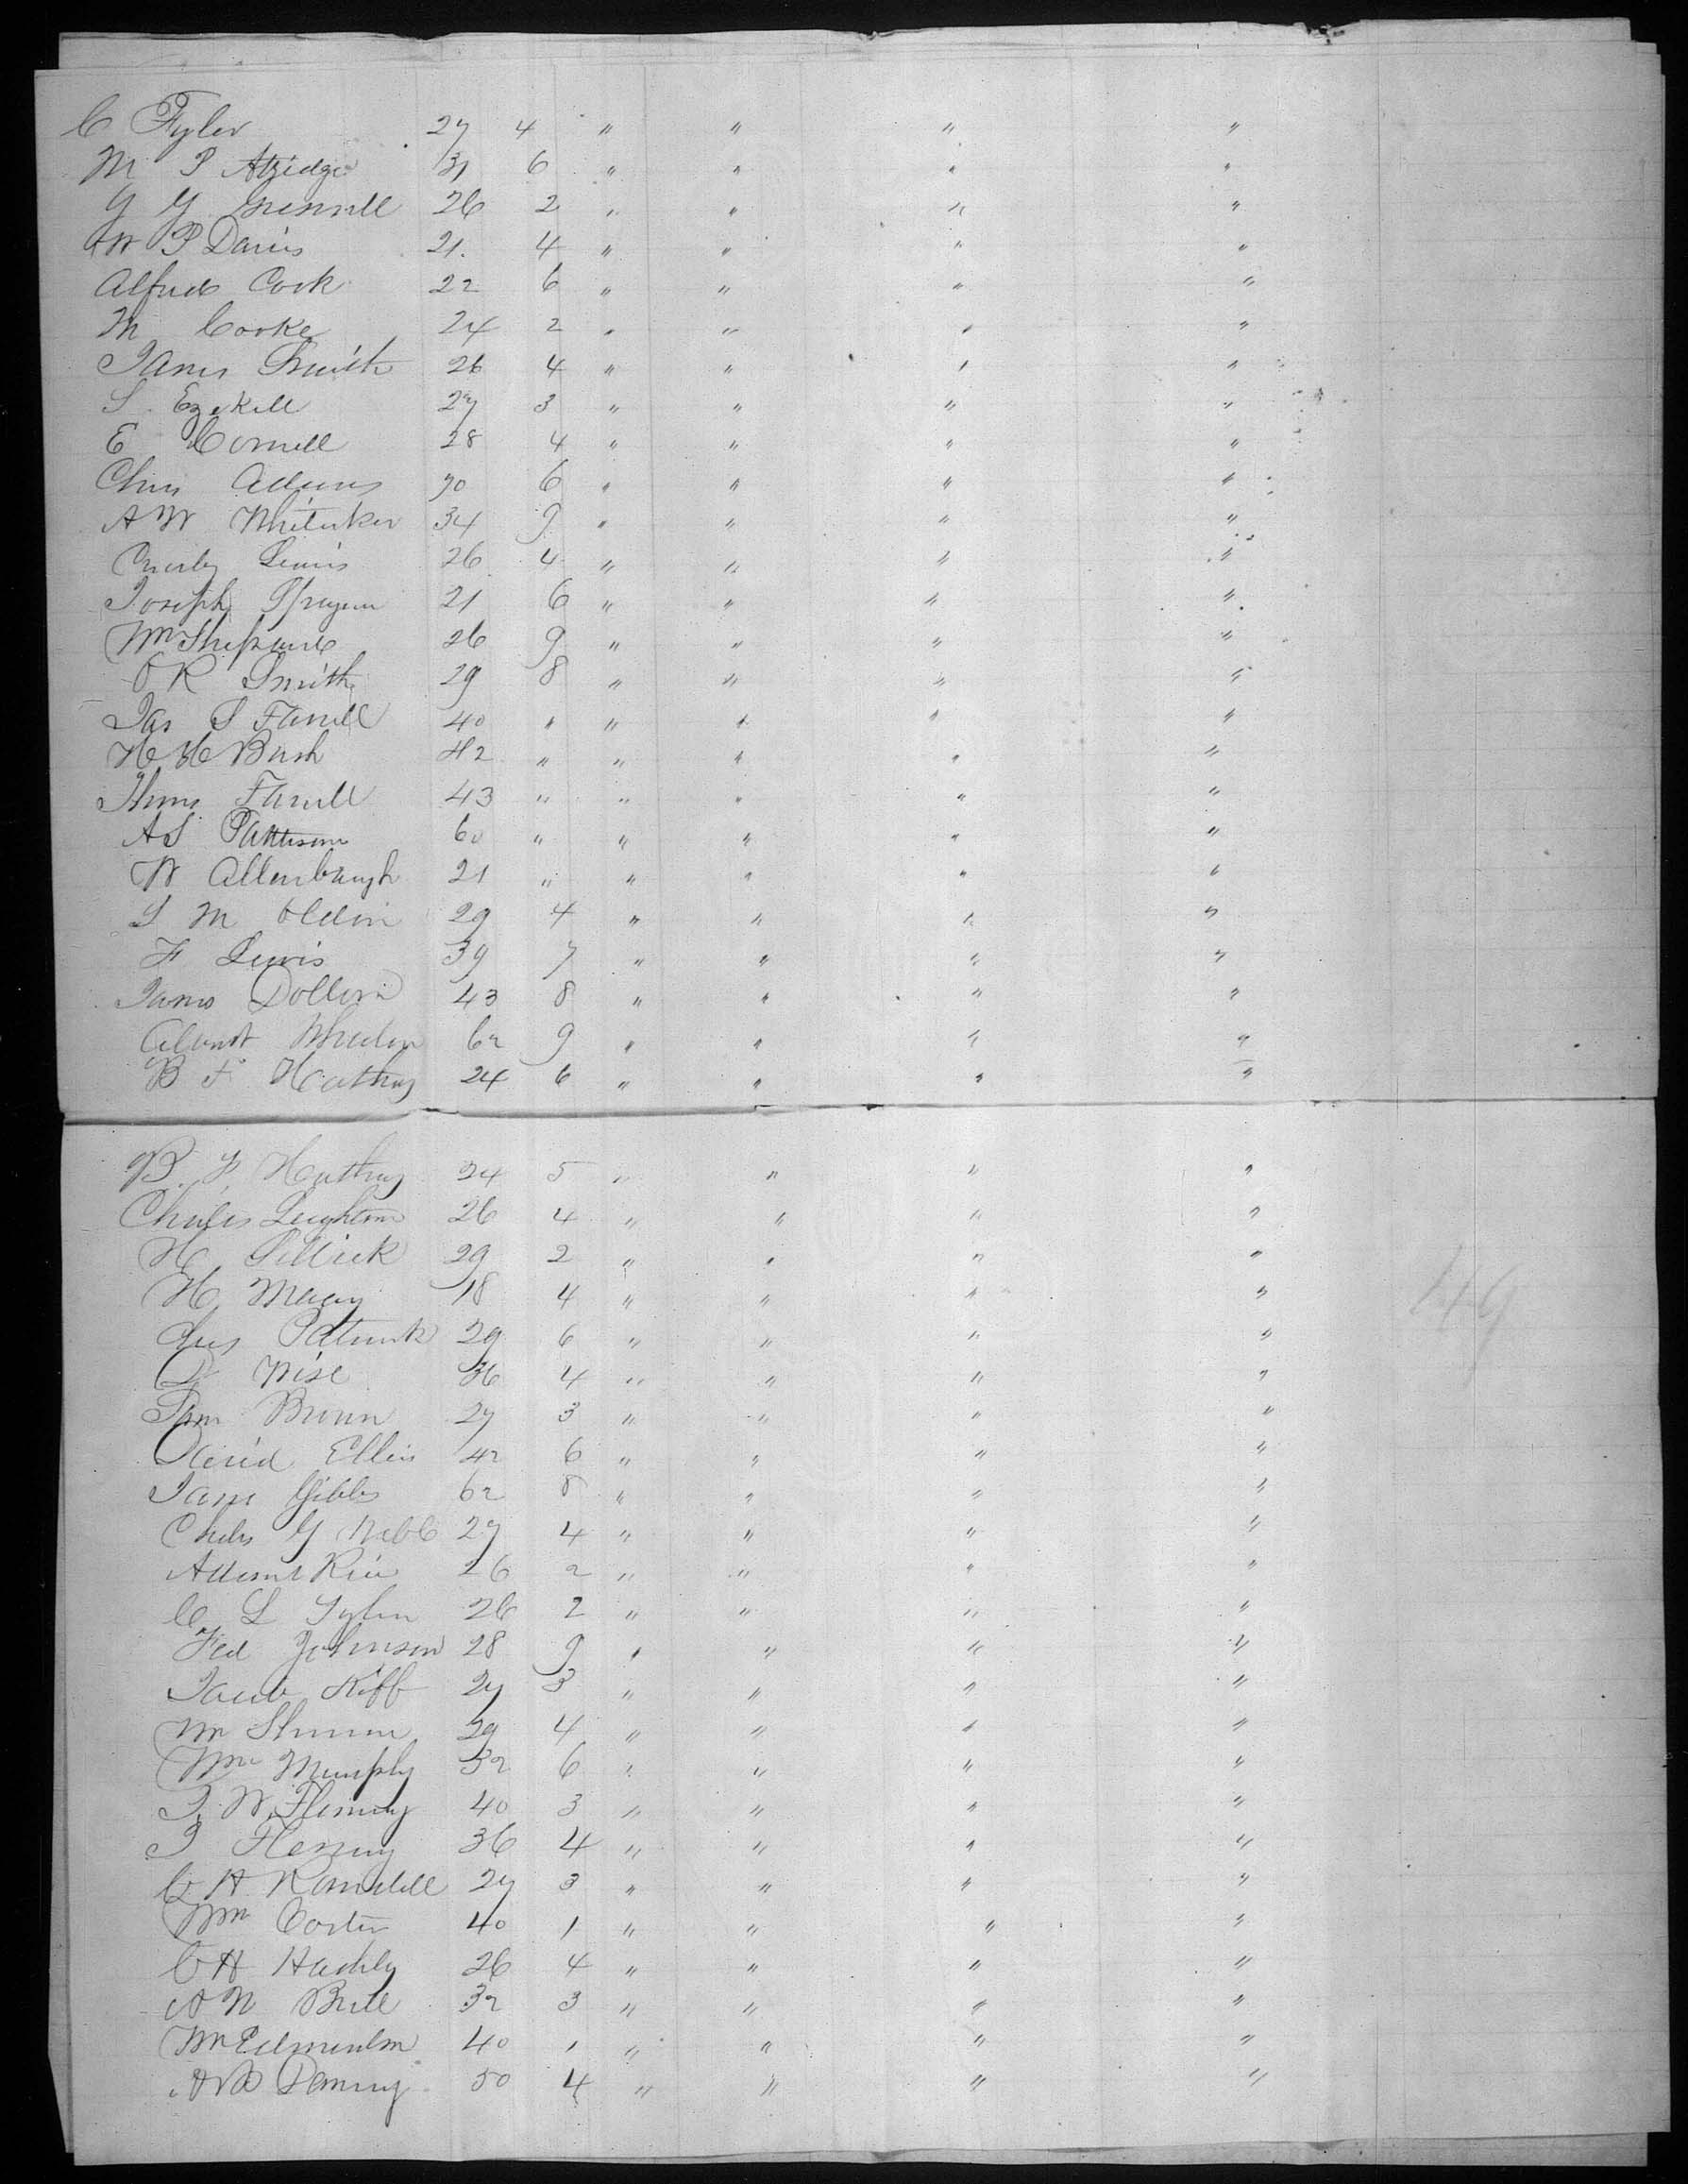 C Tyler 27 4 " " " "
M P Atridge 31 6 " " " "
G G Grennell 26 2 " " " "
W P Davis 21. 4 " " " "
Alfred Cook 22 6 " " " "
M Cooke 24 2 " " " "
James Smith 26 4 " " " "
S. Ezekill 27 3 " " " "
E Cornell 28 4 " " " "
Chris Adams 30 6 " " " "
A W Whitaker 34 9 " " " "
Lewis 26 4 " " " "
Joseph Sprague 21 6 " " " "
Wm Shepard 26 9 " " " "
O R Smith 29 8 " " " "
Jas S Farrell 40 " " " " "
H H Bush 42 " " " " "
Thms Farrell 43 " " " " "
A S Patterson 60 " " " " "
W Allenbaugh 21 " " " " "
S M 29 4 " " " "
F Lewis 39 7 " " " "
James Dollson 43 8 " " " "
Wheeler 62 9 " " " "
B F Hathay 24 6 " " " "
B. F. Hathay 24 5 " " " "
Charles Leighton 26 4 " " " "
H Sellick 29 2 " " " "
H Macy 18 4 " " " "
29 6 " " " "
D Wise 36 4 " " " "
Sam Brown 27 3 " " " "
David Ellis 42 6 " " " "
Jam Gibbs 62 8 " " " "
Chals G Webb 27 4 " " " "
Rice 26 2 " " " "
C L Tyler 26 2 " " " "
Fed Johnson 28 9 " " " "
Jacob Kiff 27 3 " " " "
Wm 29 4 " " " "
Wm Murphy 32 6 " " " "
T. W. Fleming 40 3 " " " "
T Fleming 36 4 " " " "
C H Ramsdell 27 3 " " " "
Wm Carter 40 1 " " " "
C H 26 4 " " " "
A N Brill 32 3 " " " "
Wm Edmundson 40 1 " " " "
A B Denning 50 4 " " " "
49